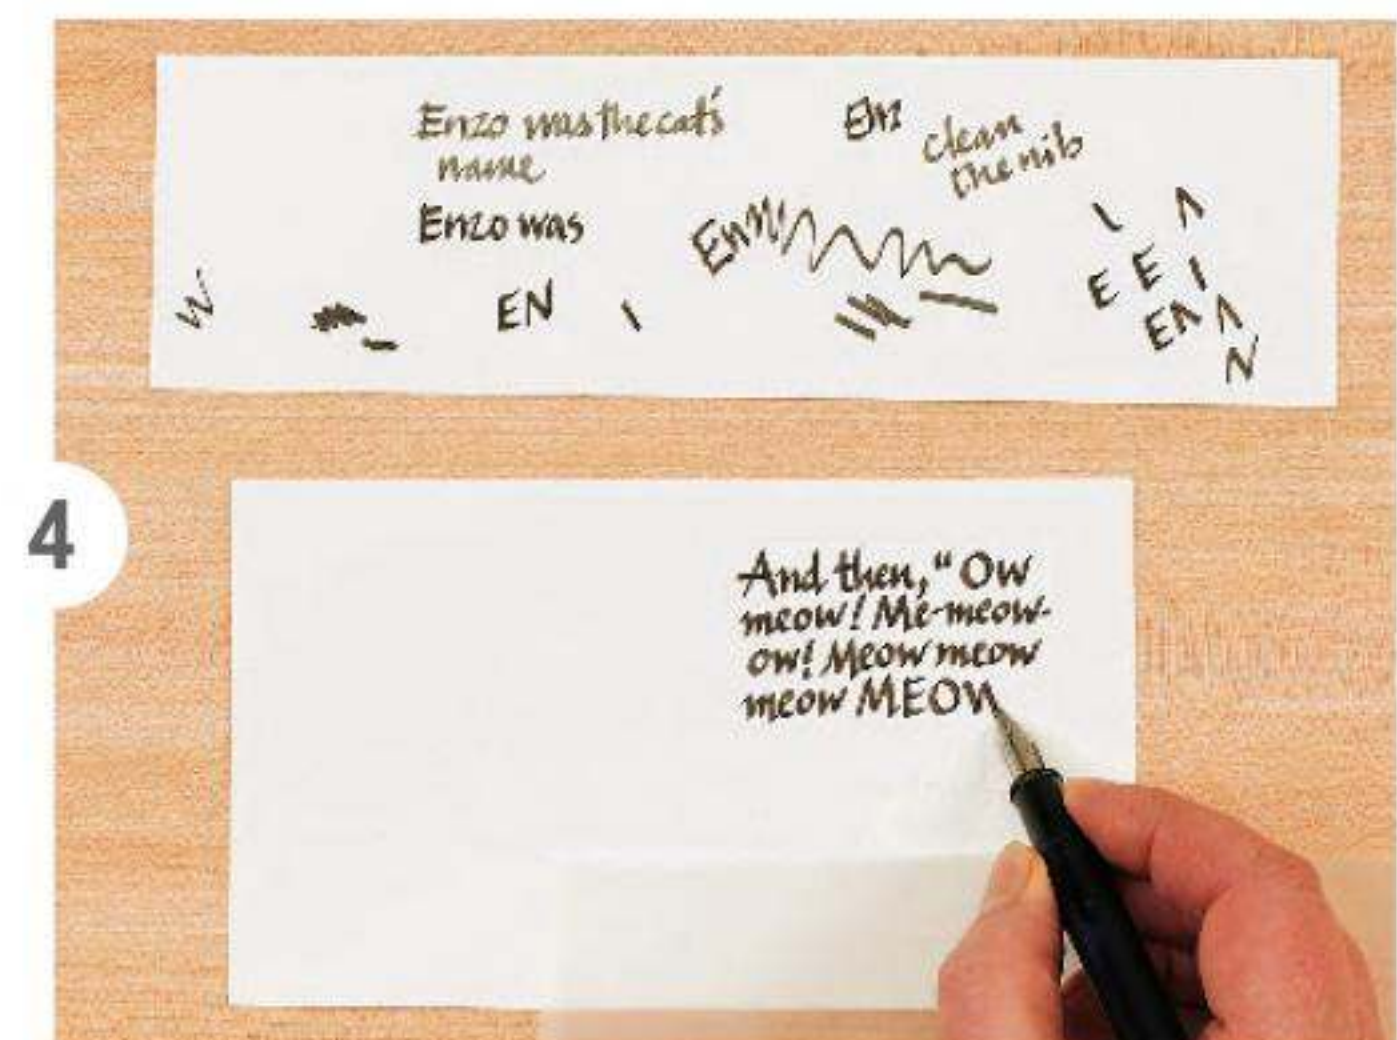 Enzo was the cat's
name
Enz
clean
the nib
Enzo was
En
EN
E E
EN
N
4
And then, "Ow
meow! Me-meow-
ow! Meow meow
meow MEOW